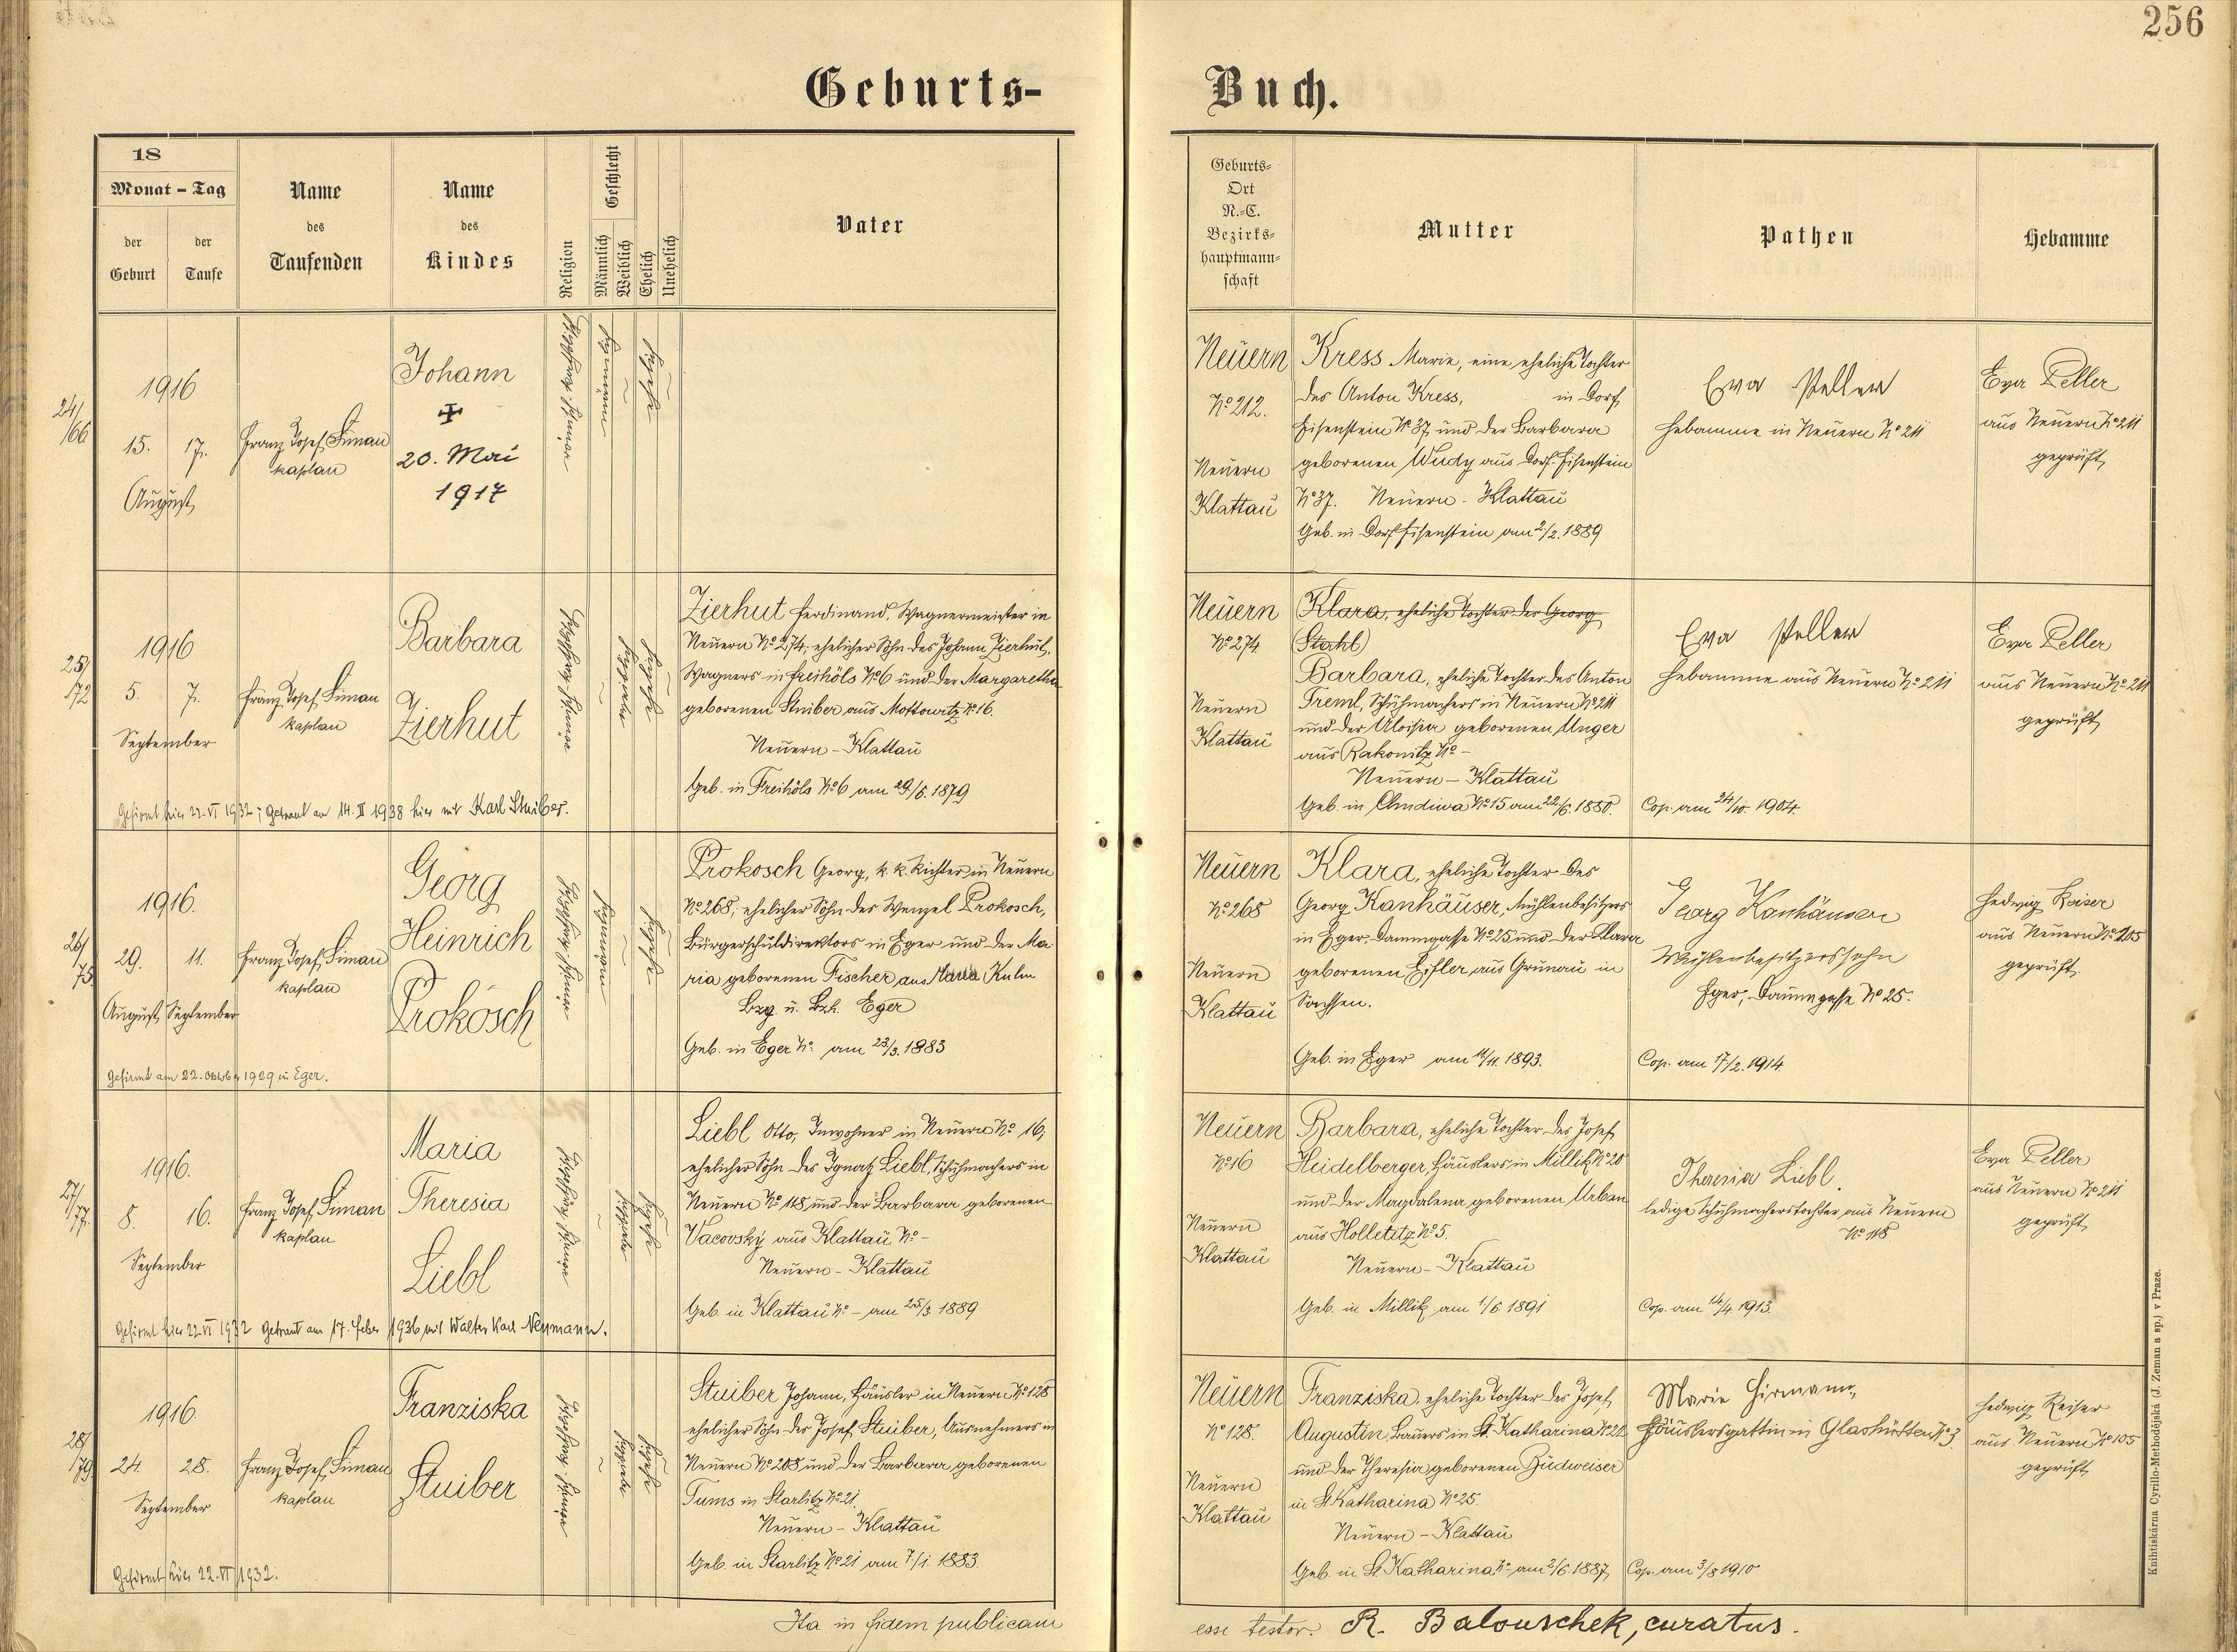 256
Geburts-
Buch.
18
Monat - Tag
der Geburt
der Taufe
Name des Taufenden
Name des Kindes
Religion
Geschlecht
Männlich
Weiblich
Ehelich
Unehelich
Vater
Geburts-
Ort
N.-C.
Bezirks-
hauptmann-
schaft
Mutter
Pathen
Hebamme
24/
166
1916
15. 17.
August
Franz Josef Siman
kaplan
Johann
20. Mai
1917
Neuern
No 212.
Neuern
Klattau
Kress Marie, eine eheliche Tochter
des Anton Kress, in Dorf
Eisenstein No 37, und der Barbara
geborenen Wudy aus Dorf Eisenstein
No 37. Neuern - Klattau
Geb. in Dorf Eisenstein am 2/2. 1889
Eva Peller
Hebamme in Neuern No 211
Eva Peller
aus Neuern No 211
geprüft
25/
172
1916
5. 7.
September
Franz Josef Siman
kaplan
Barbara
Zierhut
Zierhut Ferdinand, Wagnermeister in
Neuern No 274; ehelicher Sohn des Johann Zierhut,
Wagners in Freihöls No 6 und der Margaretha
geborenen Stuiber aus Mottowitz No 16.
Neuern - Klattau
Geb. in Freihöls No 6 am 29/6. 1879
Gefirmt hier 22. VI 1932; Getraut am 14. II 1938 hier mit Karl Stuiber.
Neuern
No 274.
Neuern
Klattau
Klara, eheliche Tochter des Georg
(Stahl)
Barbara, eheliche Tochter des Anton
Treml, Schuhmachers in Neuern No 211
und der Aloisia geborenen Unger
aus Rakonitz No -
Neuern - Klattau
Geb. in Chudiwa No 15 am 22/6. 1880.
Eva Peller
Hebamme aus Neuern No 211
Cop. am 24/10. 1904.
Eva Peller
aus Neuern No 211
geprüft
26/
75
1916.
29. 11.
August September
Franz Josef Siman
kaplan
Georg
Heinrich
Prokosch
Prokosch Georg, k. k. Richter in Neuern
No 268; ehelicher Sohn des Wenzel Prokosch,
Bürgerschuldirektors in Eger und der Ma-
ria geborenen Fischer aus Maria Kulm
Bzg. u. Bzh. Eger
Geb. in Eger No. am 23/3. 1883
Gefirmt am 22. Oktober 1929 in Eger.
Neuern
No 268
Neuern
Klattau
Klara, eheliche Tochter des
Georg Kanhäuser, Mühlenbesitzers
in Eger, Dammgasse No 25 und der Klara
geborenen aus Grünau in
Sachsen.
Geb. in Eger am 11. 1893.
Georg Kanhäuser
Mühlenbesitzerssohn
Eger, Dammgasse No 25.
Cop. am 17/2. 1914.
Hedwig Reiser
aus Neuern No 105
geprüft.
27/
77.
1916.
8. 16.
September
Franz Josef Siman
kaplan
Maria
Theresia
Liebl
Liebl Otto, Inwohner in Neuern No 16;
ehelicher Sohn des Ignatz Liebl, Schuhmachers in
Neuern No 118, und der Barbara geborenen
Vacovský aus Klattau No -
Neuern - Klattau
Geb. in Klattau No - am 25/3. 1889
Gefirmt hier 22. VI 1932 Getraut am 17. Feber 1936 mit Walter Karl Neumann.
Neuern
No 16
Neuern
Klattau
Barbara, eheliche Tochter des Josef
Heidelberger, Häuslers in Millik No 20
und der Magdalena geborenen Urban
aus Holletitz No 5.
Neuern - Klattau
Geb. in Millik am 1/6 1891
Theresia Liebl.
ledige Schuhmacherstochter aus Neuern
No 118
Cop. am 14/4. 1913.
Eva Peller
aus Neuern No 211
geprüft
28/
179
1916.
24. 28.
September
Franz Josef Siman
kaplan
Franziska
Stuiber
Stuiber Johann, Häusler in Neuern No 128
ehelicher Sohn des Josef Stuiber, Ausnehmers in
Neuern No 208 und der Barbara geborenen
Tums in Starlitz No 21.
Neuern - Klattau
Geb. in Starlitz No 21 am 7/1. 1883
Gefirmt hier 22. VI 1932.
Neuern
No 128.
Neuern
Klattau
Franziska, eheliche Tochter des Josef
Augustin, Bauers in St. Katharina No 21
und der Theresia geborenen Budweiser
in St Katharina No 25.
Neuern - Klattau
Geb. in St. Katharina No - am 2/6. 1887
Marie Hirmann,
Häuslersgattin in Glashütten No 3.
Cop. am 3/8 1910
Hedwig Reiser
aus Neuern No 105
geprüft
Ita in fidem publicam
esse testor. R. Balouschek, curatus.
Knihtiskárna Cyrillo-Methodějská (J. Zeman a sp.) v Praze.